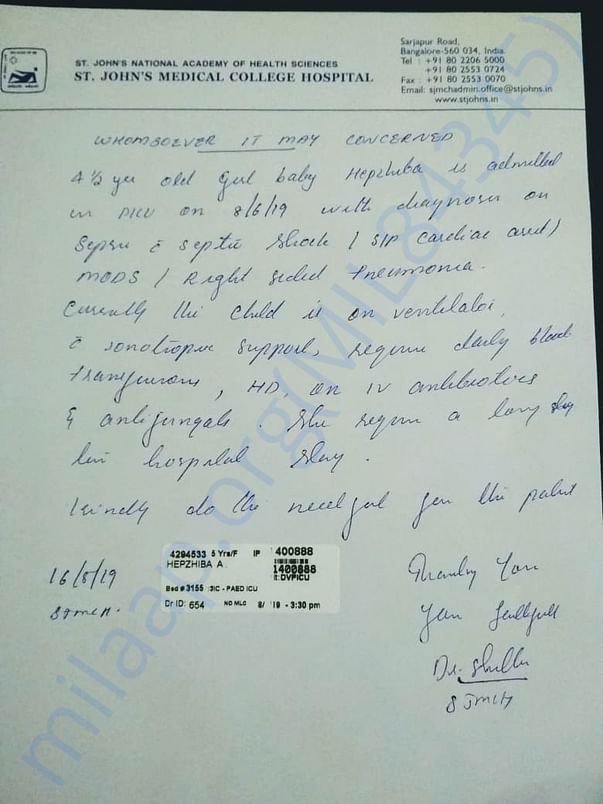 ST. JOHN'S NATIONAL ACADEMY OF HEALTH SCIENCES
ST. JOHN'S MEDICAL COLLEGE HOSPITAL
Sarjapur Road,
Bangalore-560 034, India.
Tel : +91 80 2206 5000
+91 80 2553 0724
Fax : +91 80 2553 0070
Email: sjmchadmin.office@stjohns.in
www.stjohns.in
WHOMSOEVER IT MAY CONCERNED
4 ½ year old Girl baby Hepzhiba is admitted
in PICU on 8/6/19 with diagnosis on
Sepsis c̄ septic shock / S/P cardiac arrest /
MODS / Right sided Pneumonia.
Currently the child is on ventilator,
c̄ ionotropic support, require daily blood
transfusions, HD, on IV antibiotics
& antifungals. She require a long stay
hospital stay.
Kindly do the needful for the patient
Thanking You
Your faithfully
Dr.
SJMCH
16/8/19
SJMCH.
4294533 5 Yrs/F IP 1400888
HEPZHIBA A. 1400888
DVPICU
Bed # 3155 :3IC - PAED ICU
Dr ID: 654 NO MLC 8/ '19 - 3:30 pm
milaap.org(MIL84345)